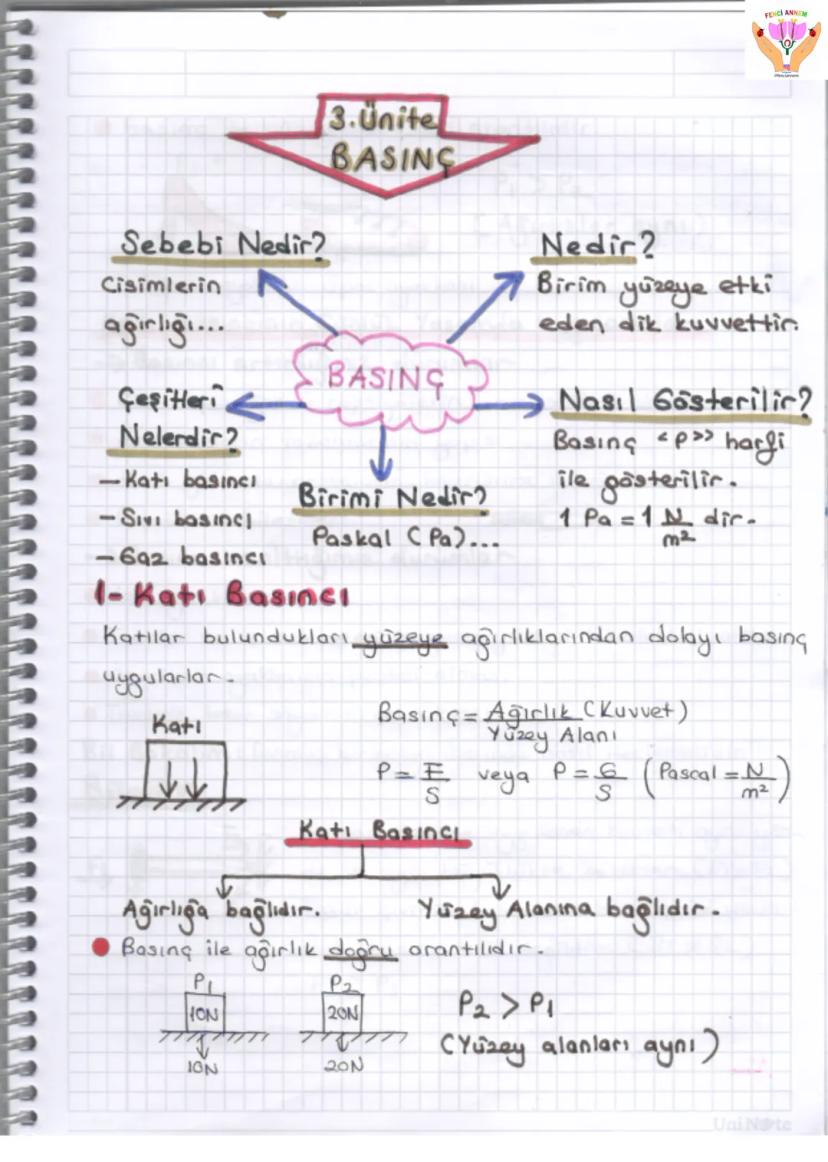 FENCİ ANNEM
3.Ünite
BASINÇ
Sebebi Nedir?
Cisimlerin
ağırlığı...
Nedir?
Birim yüzeye etki
eden dik kuvvettir.
BASINÇ
Çeşitleri
Nelerdir?
- Katı basıncı
- Sıvı basıncı
- Gaz basıncı
Birimi Nedir?
Paskal (Pa)...
Nasıl Gösterilir?
Basınç «P» harfi
ile gösterilir.
1 Pa = 1 N/m² dir.
1- Katı Basıncı
Katılar bulundukları yüzeye ağırlıklarından dolayı basınç
uygularlar.
Katı
Basınç = Ağırlık (Kuvvet) / Yüzey Alanı
P = F/S veya P = G/S (Pascal = N/m²)
Katı Basıncı
Ağırlığa bağlıdır. Yüzey Alanına bağlıdır.
Basınç ile ağırlık doğru orantılıdır.
P1 P2
10N 20N
P2 > P1
(Yüzey alanları aynı)
10N 20N
UniNote